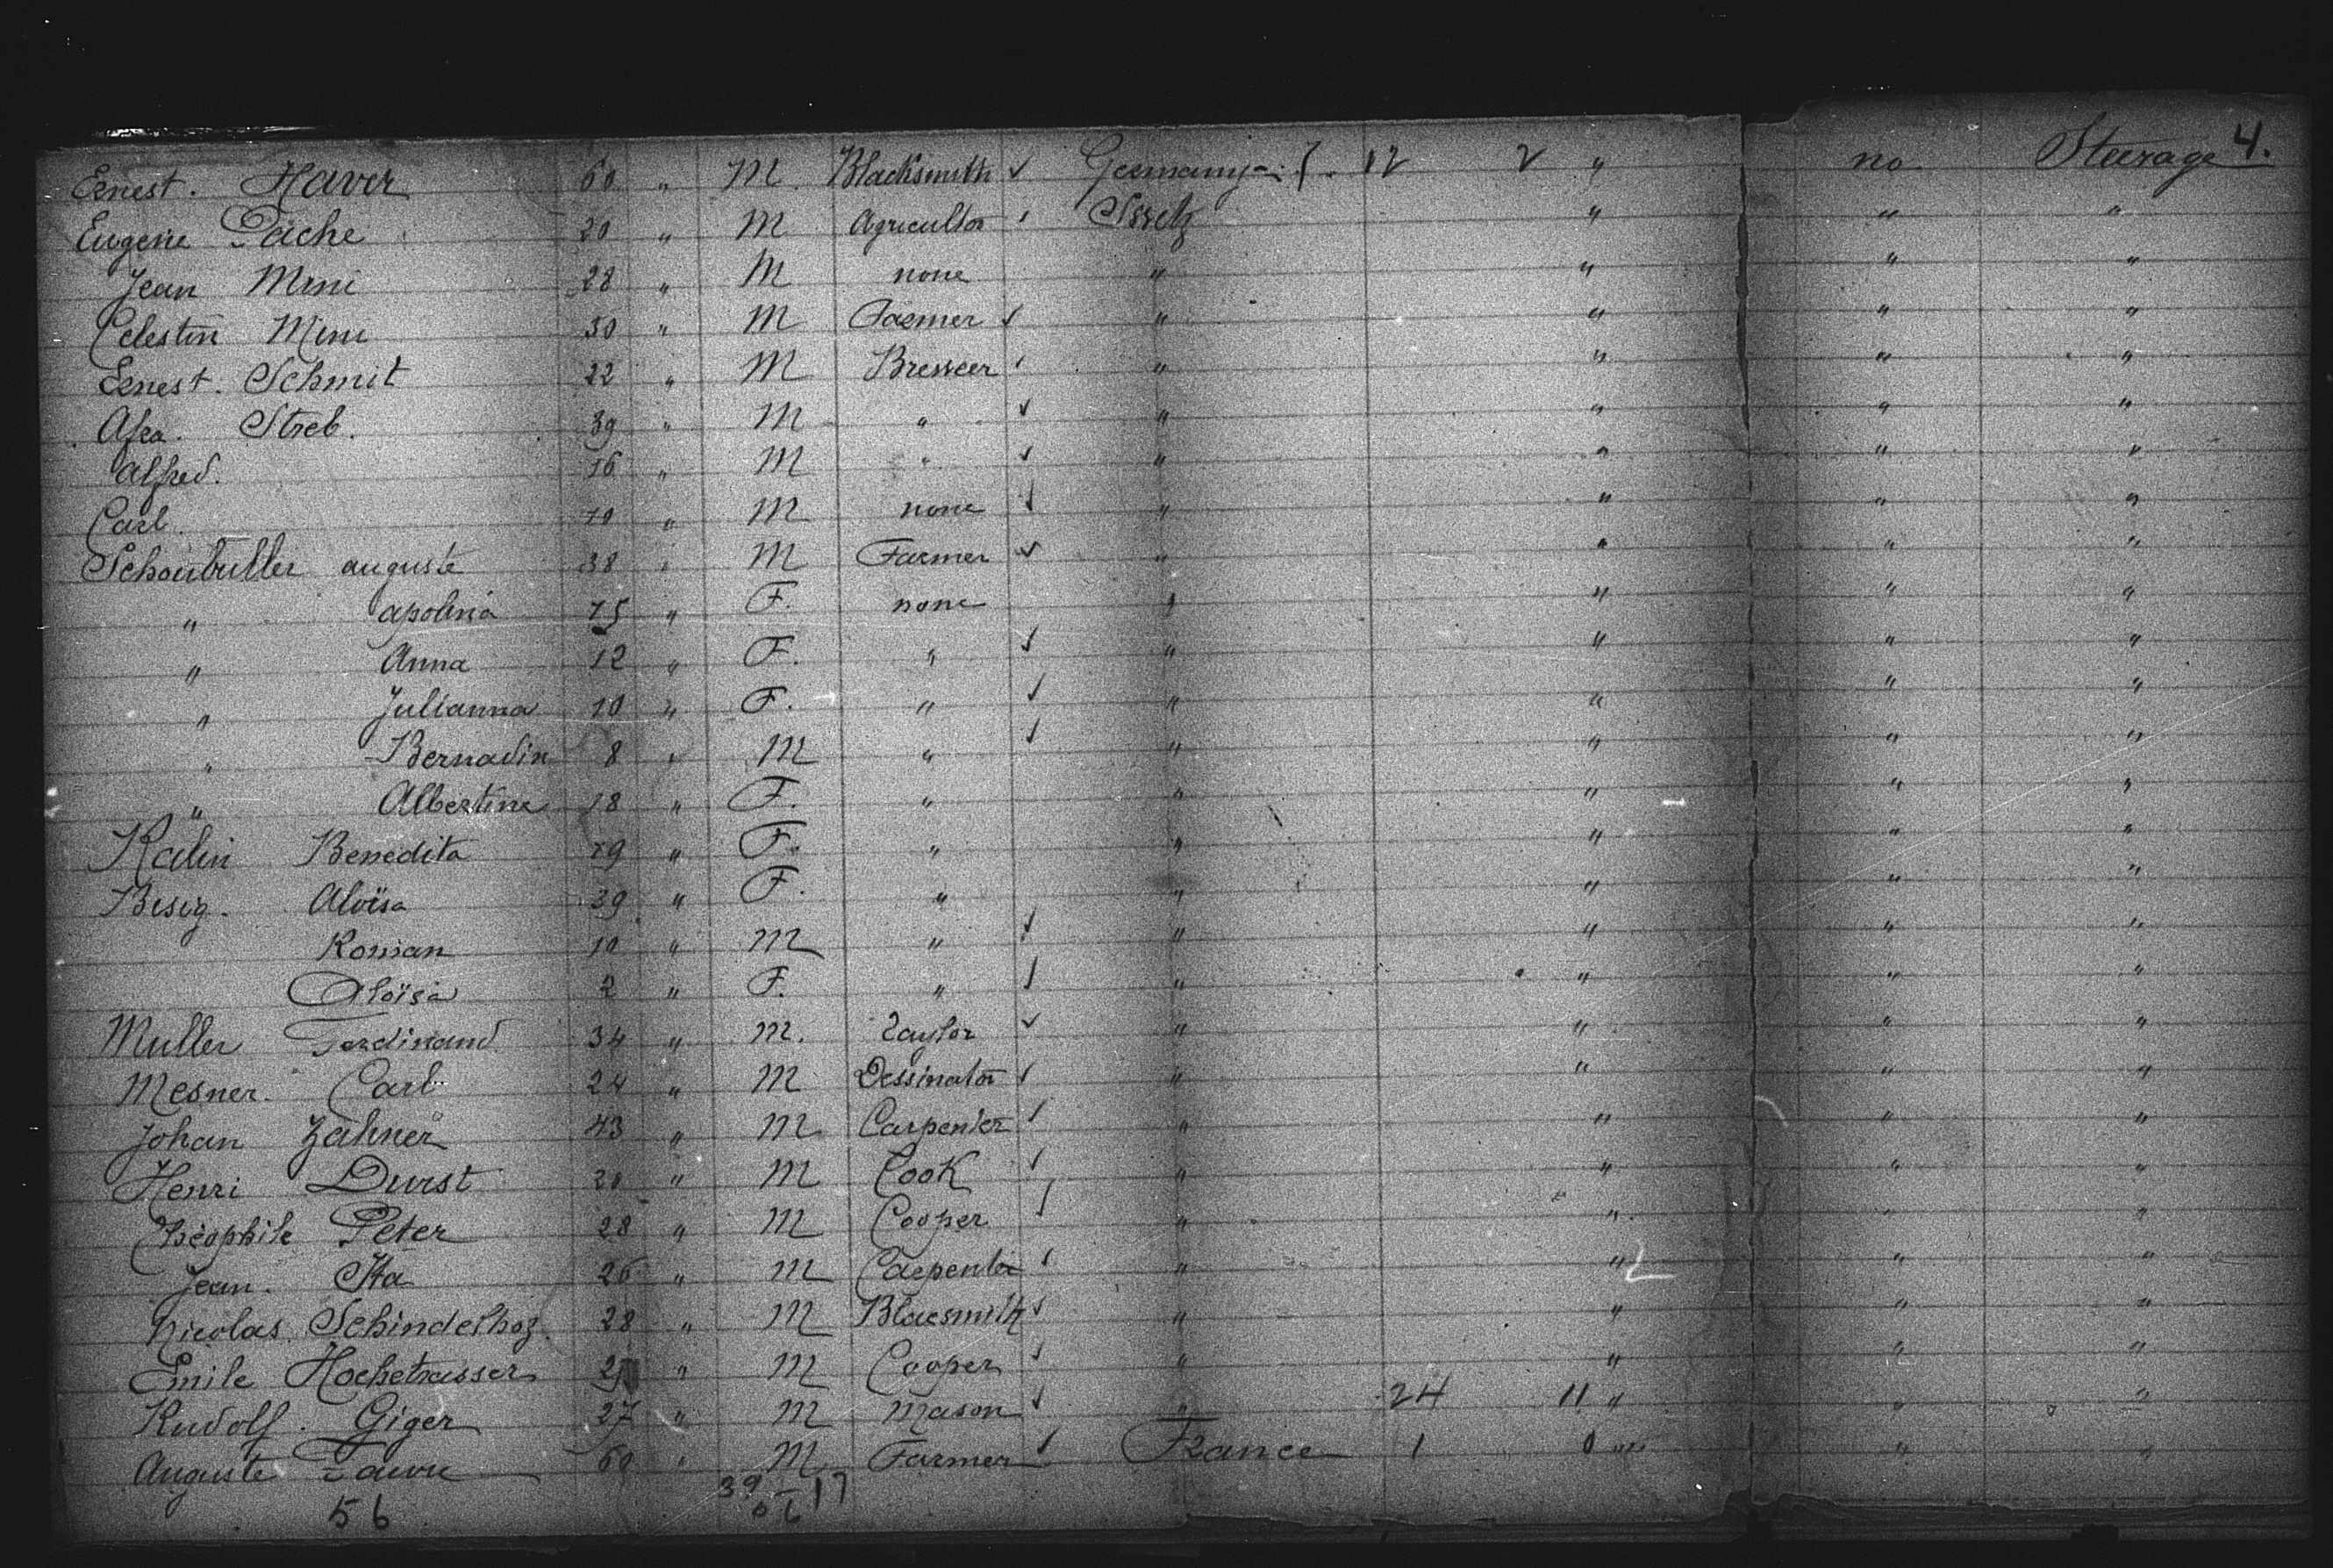 4.
Ernest. Haver 60 " M. Blacksmith ✓ Germany 12 2 " no Steerage
Eugene Pache 20 " M Agricultor " " "
Jean Mini 28 " M none " " " "
Celestin Mini 50 " M Farmer ✓ " " " "
Ernest. Schmit 22 " M " " " "
Afra. Streb. 39 " M " ✓ " " " "
Alfred. 16 " M " ✓ " " " "
Carl " M none ✓ " " " "
auguste 38 " M Farmer ✓ " " " "
" apolina 75 " F. none " " " "
" Anna 12 " F. " ✓ " " " "
" Julianna 10 " F. " ✓ " " " "
" Bernadin 8 " M " ✓ " " " "
" Albertine 18 " F. " " " " "
Kalin Benedita " F. " " " " "
Besig. Aloïsa 39 " F. " " " " "
Roman 10 " M " ✓ " " " "
Aloïsia 2 " F. " ✓ " " " "
Muller Ferdinand 34 " M. Taylor ✓ " " " "
Mesner. Carl 24 " M Dessinator ✓ " " " "
Johan Zahner 43 " M Carpenter ✓ " " " "
Henri Durst 20 " M Cook ✓ " " " "
Théophile Peter 28 " M Cooper ✓ " " " "
Jean. Ita 26 " M Carpenter ✓ " " " "
Nicolas Schindelhoz 28 " M Blacsmith ✓ " " " "
Emile Hochetrasser " M Cooper ✓ " " " "
Rudolf. Giger 27 " M Mason ✓ " 24 11 " " "
Auguste 60 " M Farmer ✓ France 1 0 " " "
56 39 17